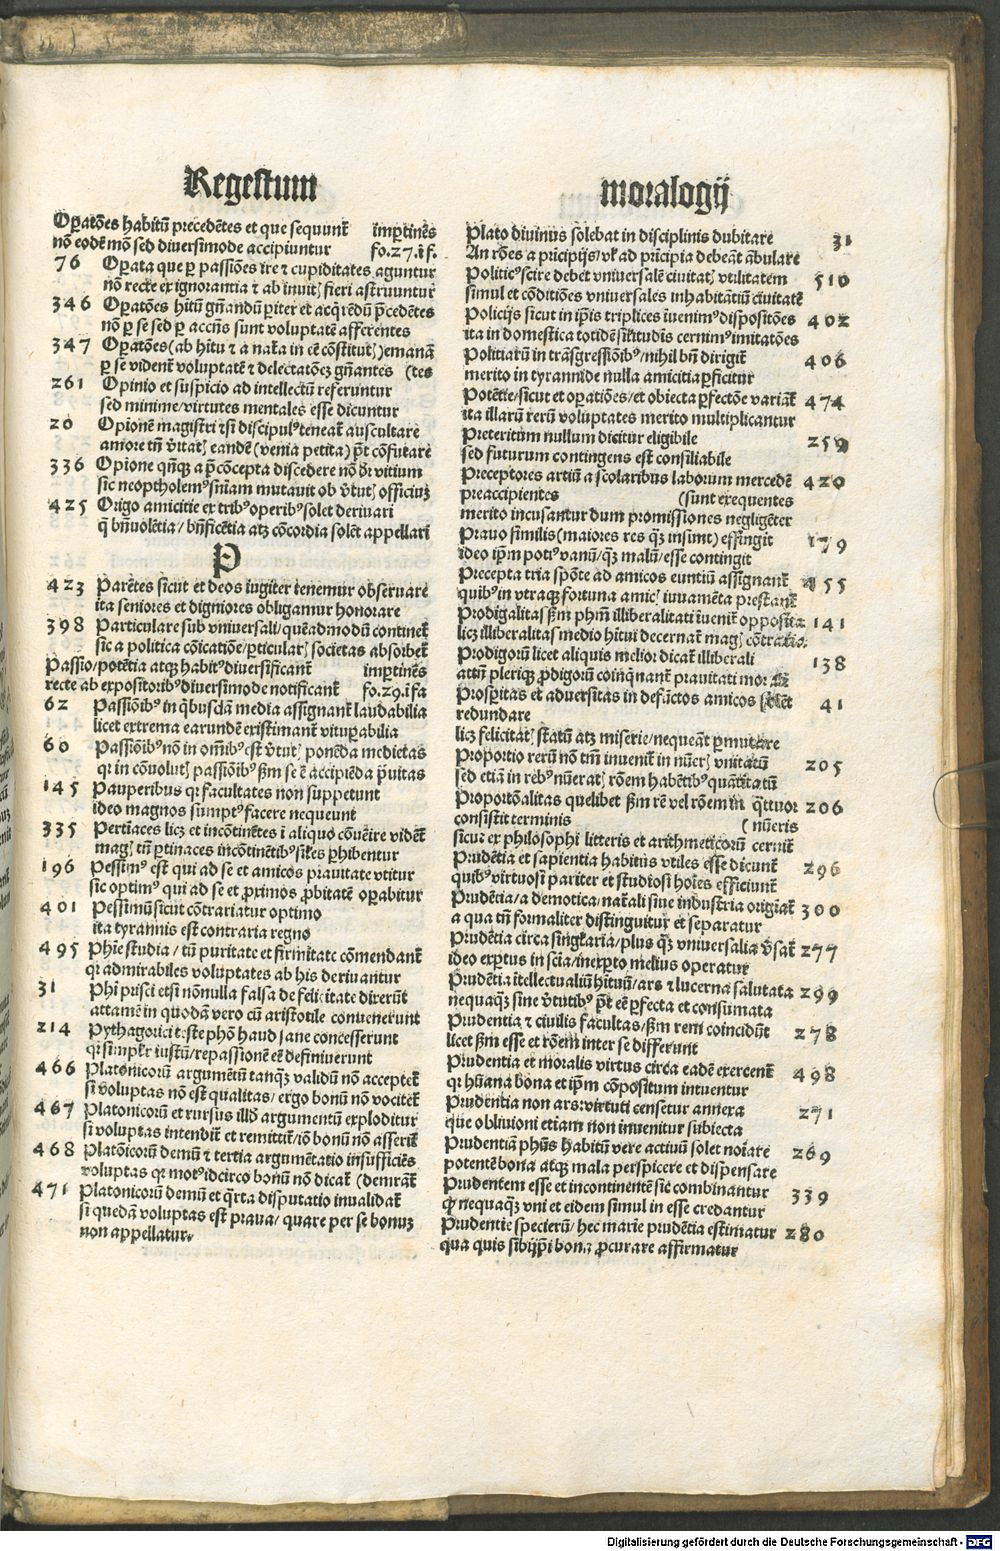 Regestum
Oꝑatões habitū precedẽtes et que sequunt᷑ imꝑtinẽs
nõ eodẽ mõ sed diuersimode accipiuntur fo.27.ī f.
76 Oꝑata que ꝑ passiões ire ⁊ cupiditates aguntur
nõ recte ex ignorantia ⁊ ab inuitꝭ fieri astruuntur
346 Oꝑatões hitū gñandū ꝑiter et acq̃rēdū p̄cedẽtes
nõ ꝑ se sed ꝑ accñs sunt voluptatẽ afferentes
347 Oꝑatões (ab hitu ⁊ a nat̃a in eẽ cõstitutꝭ) emanãt
ꝑ se vident᷑ voluptatẽ ⁊ delectatõeꝫ gñantes (tes
261 Opinio et suspicio ad intellectū referuntur
sed minime/ virtutes mentales esse dicuntur
20 Opionẽ magistri etsi discipulꝰ teneat᷑ auscultare
amore tñ v̄itatꝭ eandẽ (venia petita) põt cõfutare
336 Opione qñqꝫ a p̄cõcepta discedere nõ dr̃ vitium
sic neoptholemꝰ sñiam mutauit ob v̄tutꝭ officiuꝫ
425 Origo amicitie ex tribꝰ operibꝰ solet deriuari
q̃ bñuolẽtia/ bñficẽtia atqꝫ cõcordia solẽt appellari
P
423 Parẽtes sicut et deos iugiter tenemur obseruare
ita seniores et digniores obligamur honorare
398 Particulare sub vniuersali/ quẽadmodū continet᷑
sic a politica cõicatiõe/ ꝑticularꝭ societas absorbet᷑
Passio/ potẽtia atqꝫ habitꝰ diuersificant᷑ imꝑtinẽs
recte ab expositoribꝰ diuersimode notificant᷑ fo.29.ī fa
62 Passiõibꝰ in q̃busdã media assignant᷑ laudabilia
licet extrema earundẽ existimant᷑ vituꝑabilia
60 Passiõibꝰ nõ in om̄ibꝰ est v̄tutꝭ ponẽda medietas
qr in cõuolutꝭ passiõibꝰ ẜm se ẽ accipiẽda p̄uitas
145 Pauperibus qr facultates non suppetunt
ideo magnos sumptꝰ facere nequeunt
335 Pertiaces licꝫ et incõtinẽtes ī aliquo cõuẽire vidẽt᷑
magꝭ tñ ꝑtinaces incõtinẽtibꝰ sil̃es ꝑhibentur
196 Pessimꝰ est qui ad se et amicos prauitate vtitur
sic optimꝰ qui ad se et ꝓximos ꝓbitatẽ oꝑabitur
401 Pessimū sicut cõtrariatur optimo
ita tyrannis est contraria regno
495 Phi̅e studia/ tñ puritate et firmitate cõmendant᷑
qr admirabiles voluptates ab his deriuantur
31 Phi̅ prisci etsi nõnulla falsa de felicitate dixerūt
attamẽ in quodã vero cū aristotile conuenerunt
214 Pythagorici teste phõ haud sane concesserunt
qr simpl̃r iustū/ repassionẽ eẽ definiuerunt
466 Platonicorū argumẽtū tanqꝫ validū nõ acceptet᷑
si voluptas nõ est qualitas/ ergo bonū nõ vocitet᷑
467 Platonicorū et rursus illd̃ argumentū exploditur
si voluptas intendit᷑ et remittit᷑/ iõ bonū nõ asserit᷑
468 Platõnicorū demū ⁊ tertia argumẽtatio insufficiẽs
voluptas qr motꝰ idcirco bonū nõ dicat᷑ (demrãt᷑
471 Platonicorū demū et q̃rta disputatio inualidat᷑
si quedã voluptas est praua/ quare per se bonuꝫ
non appellatur.
moralogij
Plato diuinus solebat in disciplinis dubitare 31
An rões a pricipijs/ vl̃ ad pricipia debeãt ãbulare
Politicꝰ scire debet vniuersalẽ ciuitatꝭ vtilitatem 510
simul et cõditiões vniuersales inhabitãtiū ciuitatẽ
Policijs sicut in ip̄is triplices īuenimꝰ dispositões 402
ita in domestica totidẽ sil̃itudis cernimꝰ imitatões
Politiarū in trãsgressiõibꝰ/ nihil bñ dirigit᷑ 406
merito in tyrannide nulla amicitia ꝑficitur
Potẽtie/ sicut et oꝑatiões/ et obiecta ꝑfectõe variãt᷑ 474
ita illarū rerū voluptates merito multiplicantur
Preteritum nullum dicitur eligibile 259
sed futurum contingens est consiliabile
Preceptores artiū a scolaribus laborum mercedẽ 420
preaccipientes (sunt exequentes
merito incusantur dum promissiones negligẽter
Prauo similis (maiores res qꝫ insunt) effingit 179
ideo ip̄m potiꝰ vanū/ qꝫ malū/ esse contingit
Precepta tria spõte ad amicos euntiū assignant᷑ 455
quibꝰ in vtraqꝫ fortuna amicꝭ iuuamẽta prestant᷑
Prodigalitas ẜm phm̄ illiberalitati īuenit᷑ opposita 141
licꝫ illiberalitas medio hitui decernat᷑ magꝭ cõtraria.
Prodigorū licet aliquis melior dicat᷑ illiberali 138
attñ pleriqꝫ ꝓdigorū coinq̃nant᷑ prauitati
Prosꝑitas et aduersitas in defūctos amicos solẽt 41
redundare
licꝫ felicitatꝭ statū atqꝫ miserie/ nequeãt ꝑmutare
Proportio rerū nõ tm̄ inuenit᷑ in nūerꝭ vnitatū 205
sed etiã in rebꝰ nūeratꝭ rõem habẽtibꝰ quãtitatū
Proportõalitas quelibet ẜm rẽ vel rõem in q̃ttuor 206
consistit terminis (nūeris
sicut ex philosophi litteris et arithmeticorū cernit᷑
Prudẽtia et sapientia habitus vtiles esse dicunt᷑ 296
quibꝰ virtuosi pariter et studiosi hoīes efficiunt᷑
Prudẽtia/ a demotica/ nat̃ali siue industria origiat᷑ 300
a qua tñ formaliter distinguitur et separatur
Prudẽtia circa singl̃aria/ plus qꝫ vniuersalia v̄sat᷑ 277
ideo exꝑtus in scia/ inexꝑto melius operatur
Prudẽtia ītellectualiū hituū/ ars ⁊ lucerna salutata 299
nequaqꝫ sine v̄tutibꝰ põt eẽ ꝑfecta et consumata
Prudentia ⁊ ciuilis facultas/ ẜm rem coincidūt 278
licet ẜm esse et rõem inter se differunt
Prudentia et moralis virtus circa eadẽ exercent᷑ 498
qr hūana bona et ip̄m cõpositum intuentur
Prudentia non ars: virtuti censetur annexa 271
que obliuioni etiam non inuenitur subiecta
Prudentiã phūs habitū vere actiuū solet noīare 269
potentẽ bona atqꝫ mala perspicere et dispensare
Prudentem esse et incontinentẽ sic combinantur 339
ꝙ nequaqꝫ vni et eidem simul in esse credantur
Prudentie specierū/ hec maxīe prudẽtia estimatur 280
qua quis sibijp̄i bona ꝓcurare affirmatur
Digitalisierung gefördert durch die Deutsche Forschungsgemeinschaft - DFG